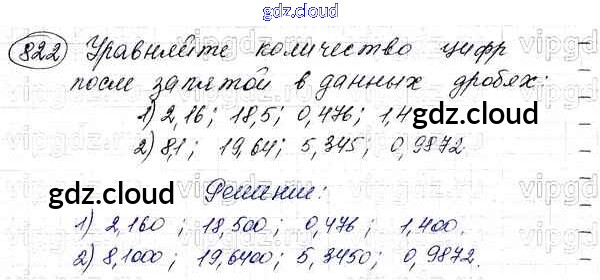 gdz.cloud
822 Уравняйте количество цифр
после запятой в данных дробях:
1) 2,16; 18,5; 0,476; 1,4
gdz.cloud
2) 8,1; 19,64; 5,345; 0,9872.
gdz.cloud
Решание:
1) 2,160; 18,500; 0,476; 1,400.
2) 8,1000; 19,6400; 5,3450; 0,9872.
gdz.cloud